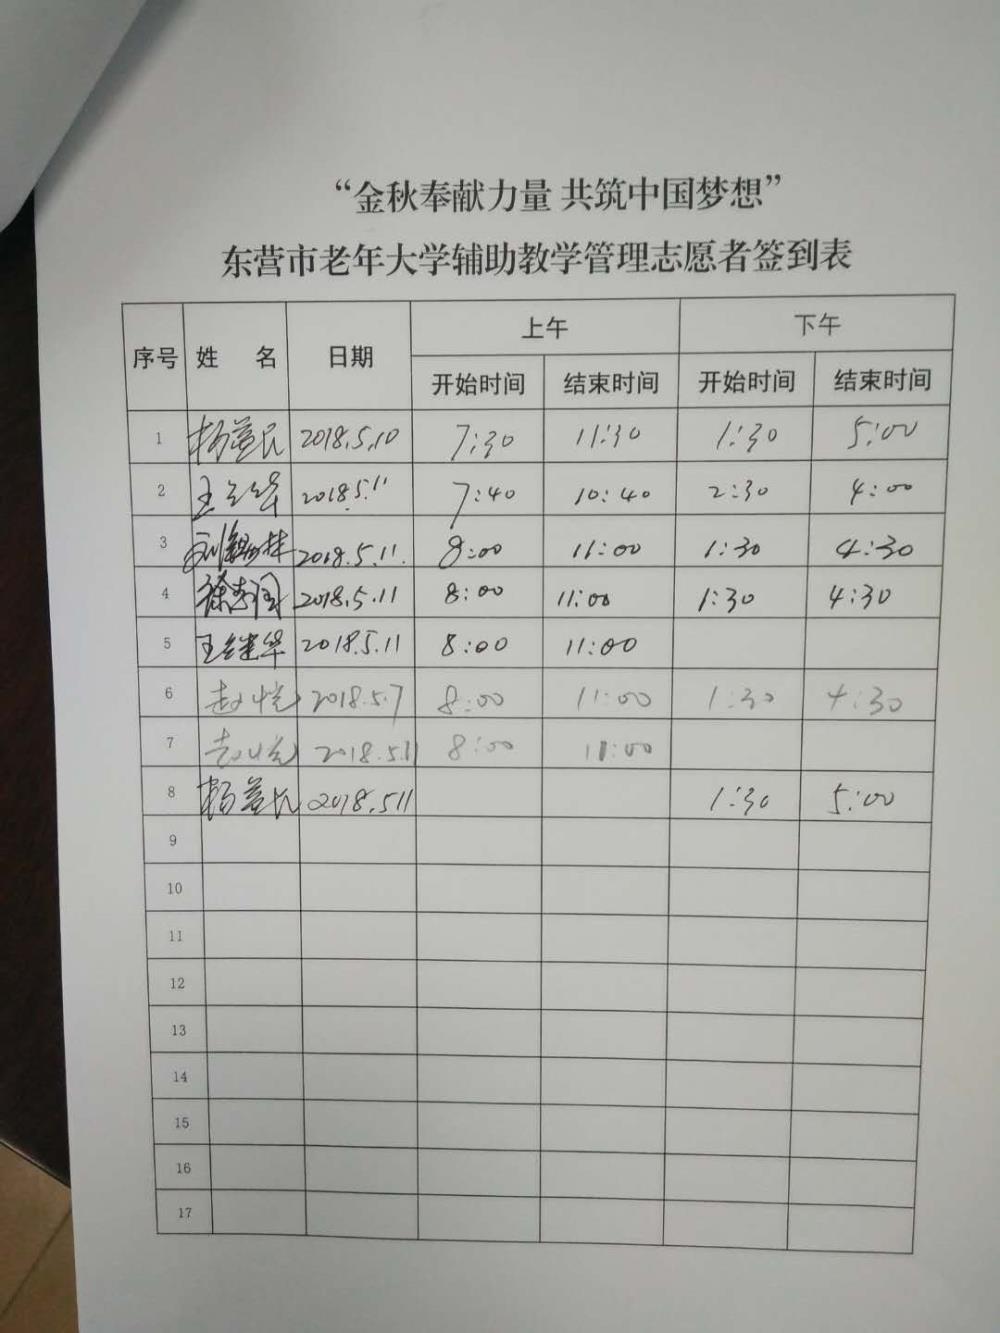 “金秋奉献力量 共筑中国梦想”
东营市老年大学辅助教学管理志愿者签到表
序号 姓 名 日期 上午 下午
开始时间 结束时间 开始时间 结束时间
1 2018.5.10 7:30 11:30 1:30 5:00
2 王 华 2018 5.11 7:40 10:40 2:30 4:00
3 2018.5.11. 8:00 11:00 1:30 4:30
4 2018.5.11 8:00 11:00 1:30 4:30
5 王继华 2018.5.11 8:00 11:00
6 2018.5.7 8:00 11:00 1:30 4:30
7 2018.5.11 8:00 11:00
8 2018.511 1:30 5:00
9
10
11
12
13
14
15
16
17